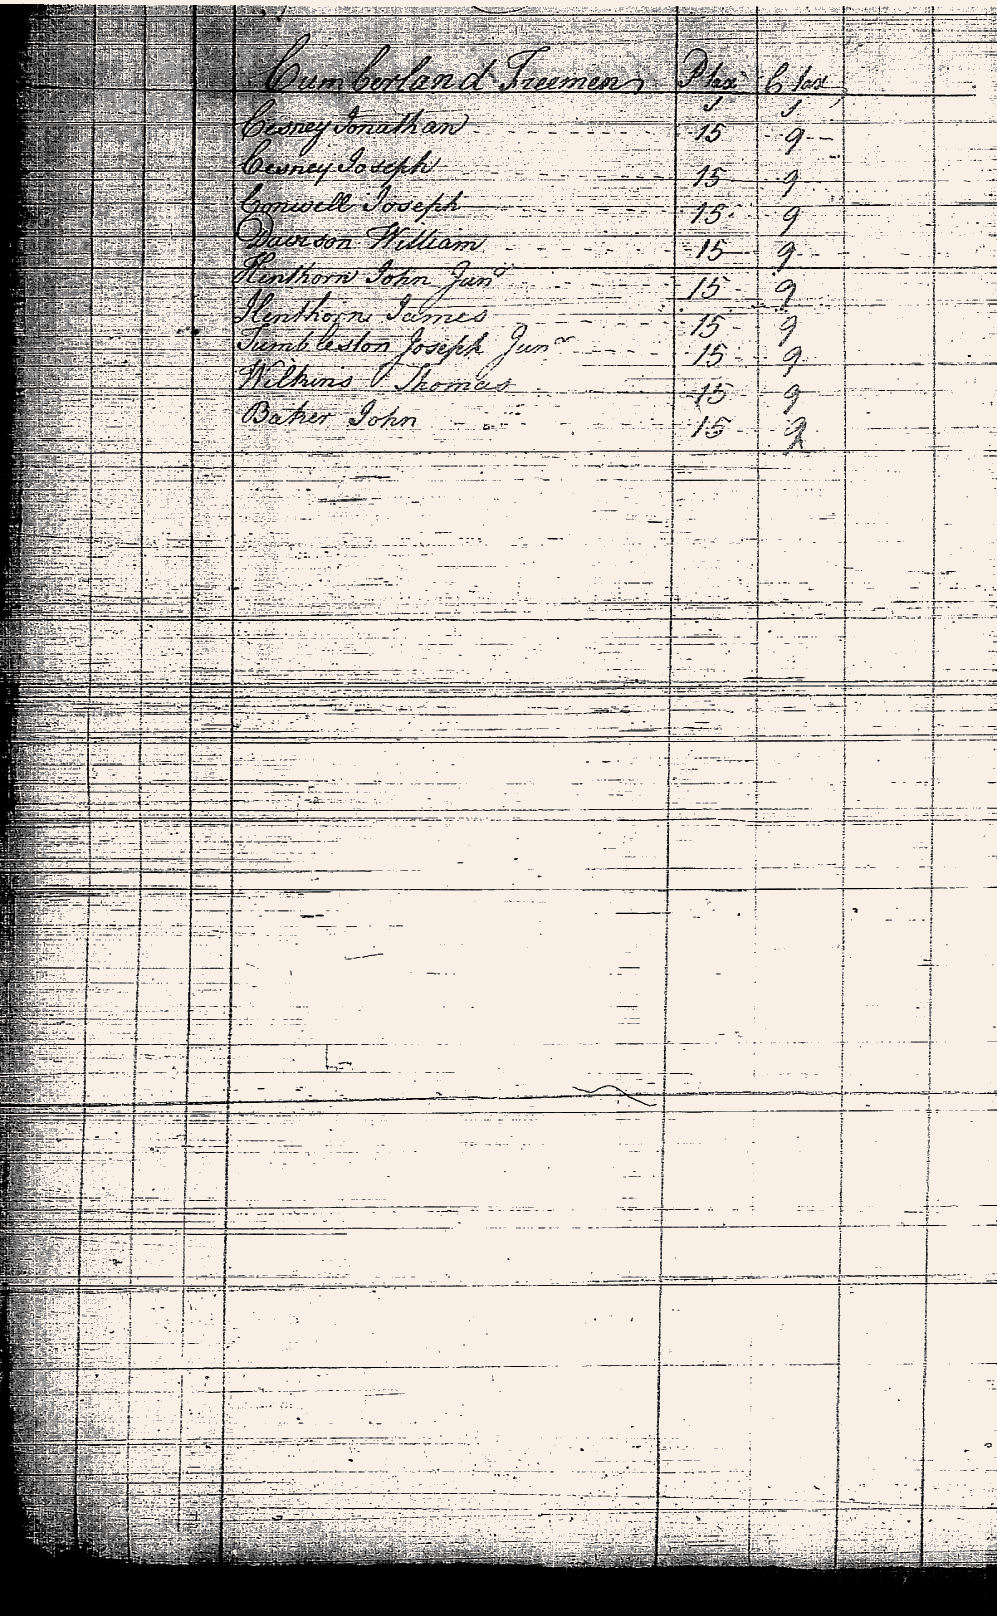 Cumberland Freemen P tax C tax
Jonathan 15 9
Joseph 15 9
Conwell Joseph 15 9
Davison William 15 9
Henthorn John Junr 15 9
Henthorn James 15 9
Tumbleston Joseph Junr 15 9
Wilkins Thomas 15 9
Baker John 15 9